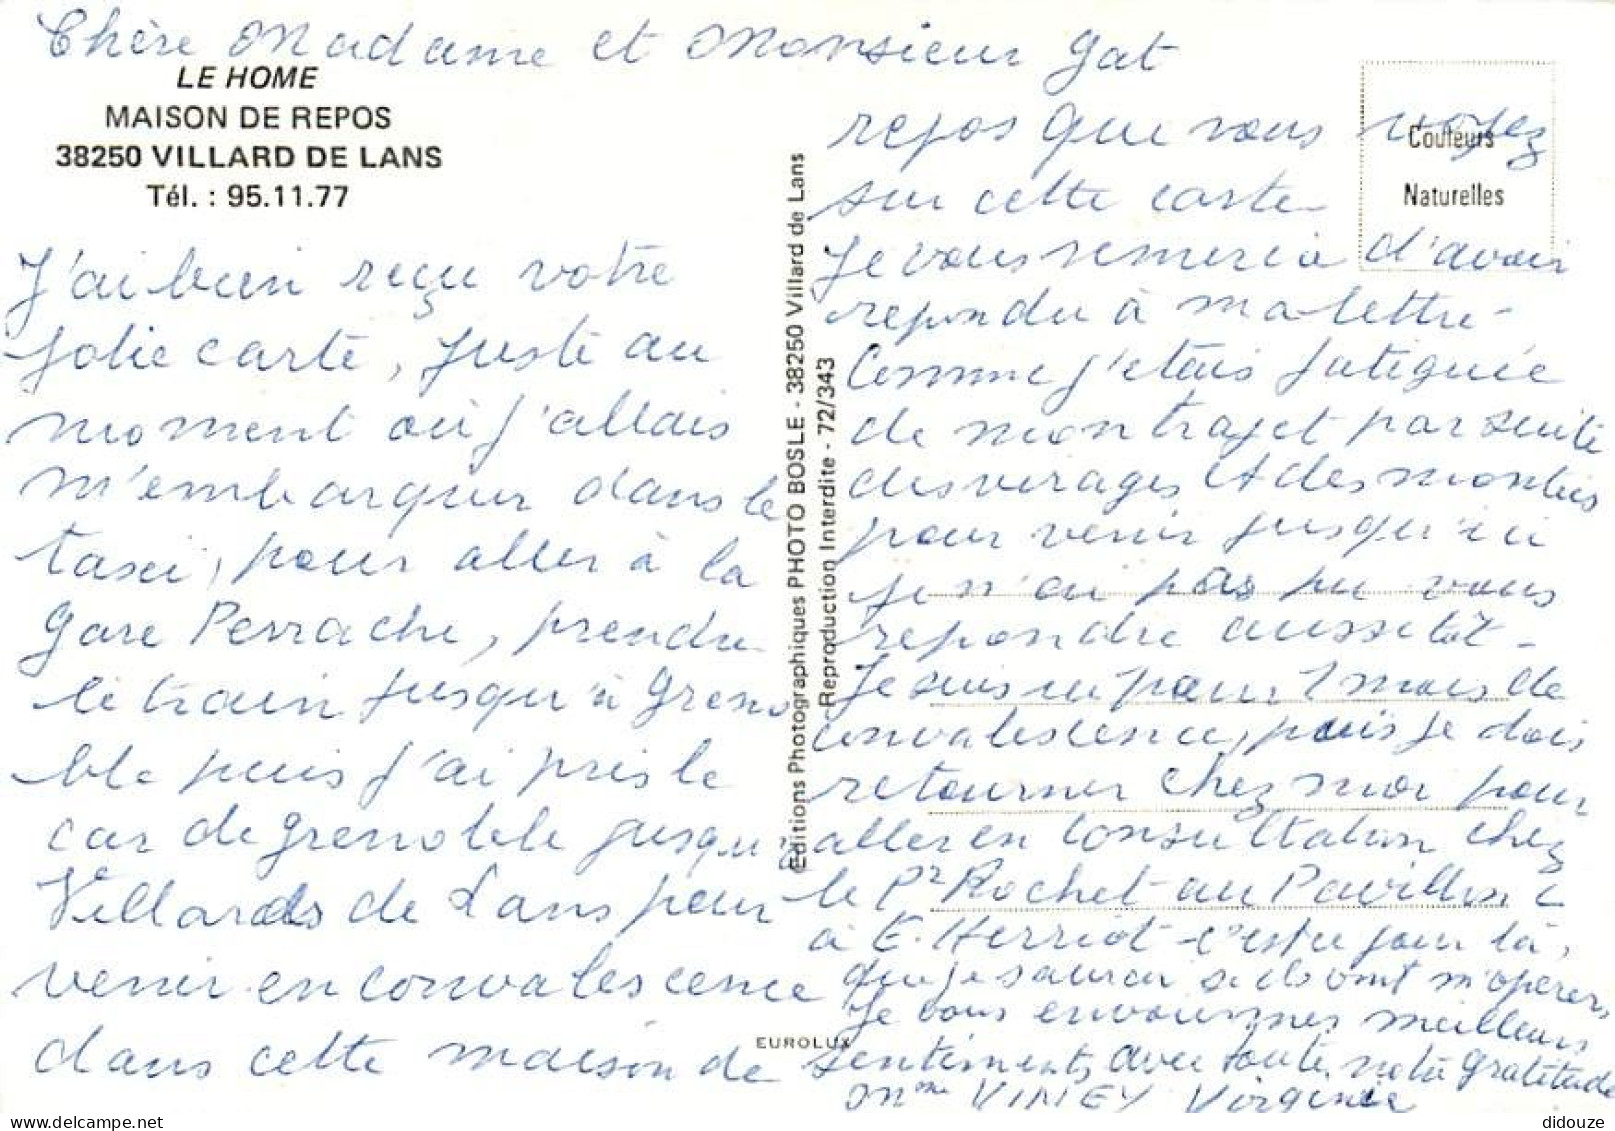 Chère Madame et Monsieur Gat
LE HOME
MAISON DE REPOS
38250 VILLARD DE LANS
Tél. : 95.11.77
J'ai bien reçu votre
jolie carte, juste au
moment où j'allais
m'embarquer dans le
taxi, pour aller à la
Gare Perrache, prendre
le train jusqu'à Greno
ble puis j'ai pris le
car de Grenoble jusqu'à
Villards de Lans pour
venir en convalescence
dans cette maison de
Editions Photographiques PHOTO BOSLE - 38250 Villard de Lans
Reproduction Interdite - 72/343
EUROLUX
Couleurs
Naturelles
repos que vous voyez
sur cette carte
Je vous remercie d'avoir
repondu à ma lettre -
Comme j'etais fatiguée
de mon trajet par suite
des virages et des montées
pour venir jusqu'ici
je n'ai pas pu vous
repondre aussitôt -
Je suis ici pour 1 mois de
convalescence, puis je dois
retourner chez moi pour
aller en consultation chez
le Pr Rochet au Pavillon
à E. Herriot - c'est ce jour là,
que je saurai si ils vont m'opérer,
Je vous meilleurs
sentiments, avec toute notre gratitude
Mme VINEY Virginie
didouze